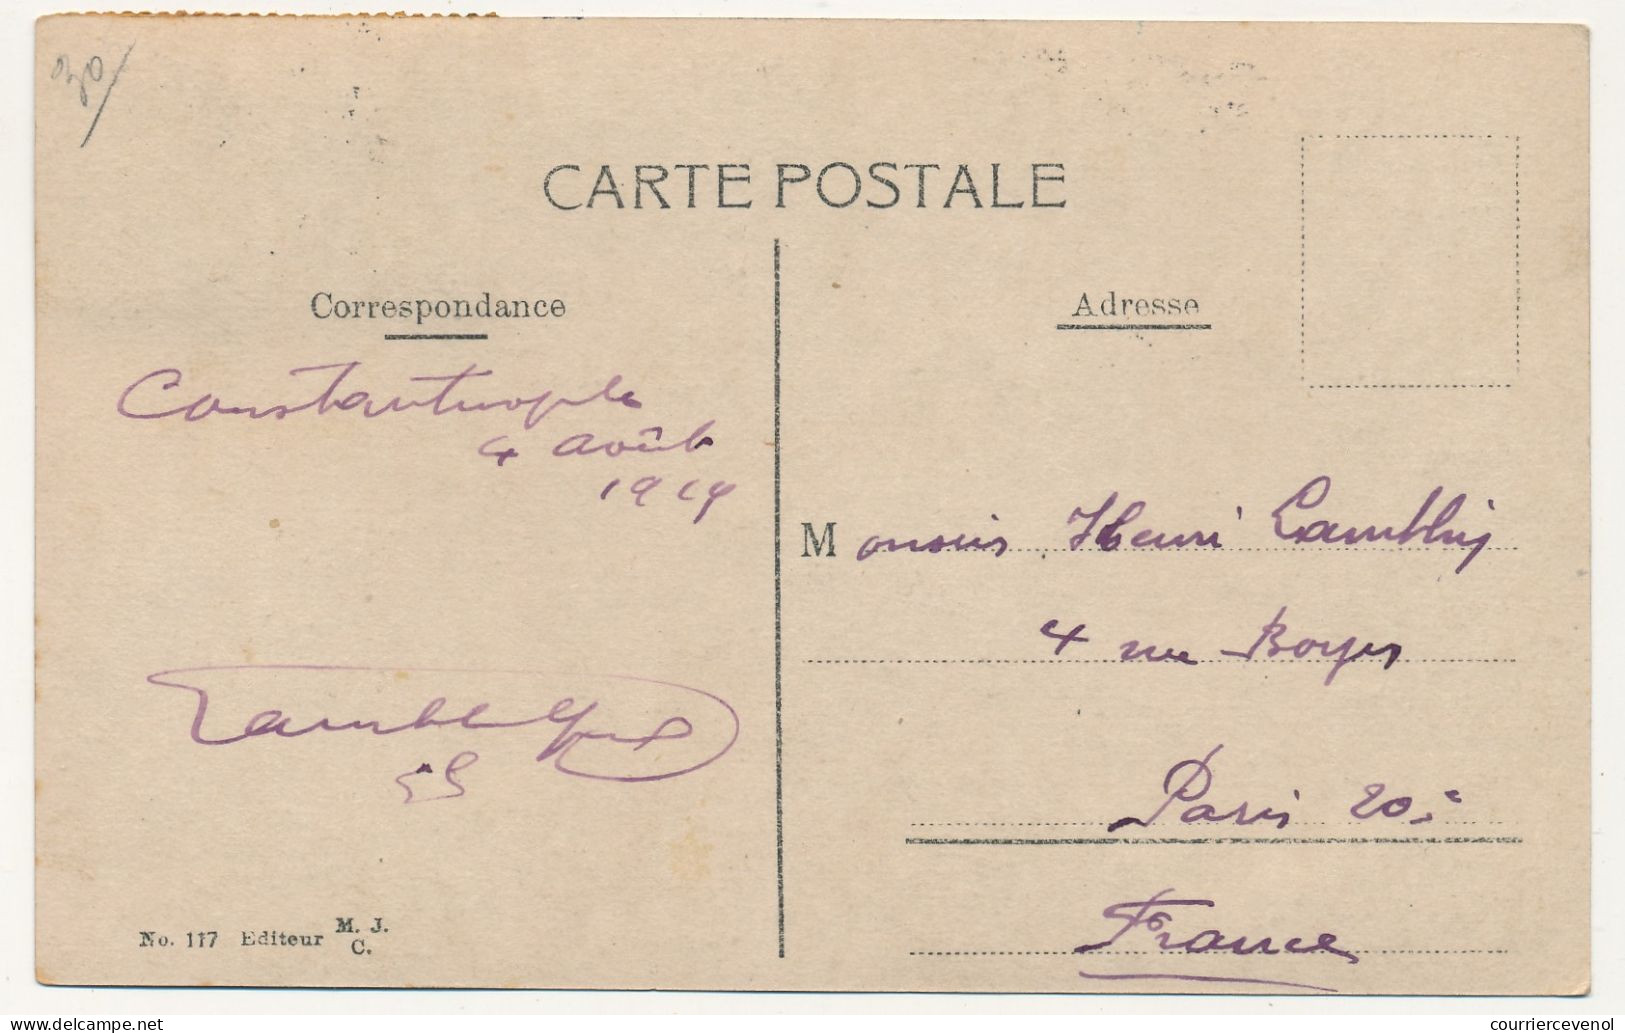 30
CARTE POSTALE
Correspondance
Adresse
Constantinople
4 août
1919
Monsieur Henri
4 rue Boyer
Paris 20e
France
No. 117 Editeur M. J. C.
delcampe.net
courriercevenol